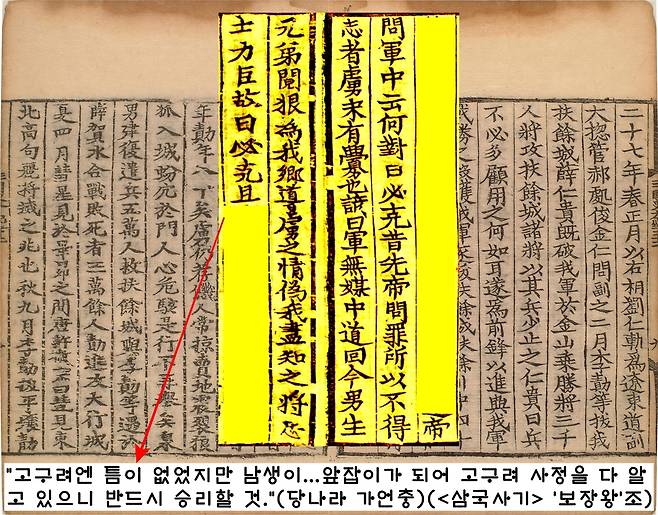 二十七年春正月以右相劉仁軌爲遼東道副
六揔管郝處俊金仁問副之二月李勣等拔我
扶餘城薛仁貴既破我軍於金山乗勝將三千
人將攻扶餘城諸將以其兵少止之仁貴曰兵
不必多顧用之何如耳遂爲前鋒以進與我軍
帝
問軍中云何對曰必克昔先帝問罪所以不得
志者虜未有釁也諺曰軍無媒中道回今男生
兄弟鬩狠爲我鄉道虜之情僞我盡知之將忠
士力臣故曰必克且
人常掠賣地震裂狼
狐入城蚡穴於門人心危駭是行不再舉矣泉
男建復遣兵五萬人救扶餘城與李勣等遇於
薛賀水合戰敗死者三萬餘人勣進攻大行城
夏四月彗星見於畢昴之間唐許敬宗曰彗見東
北高句麗將滅之兆也秋九月李勣拔平壤勣
"고구려엔 틈이 없었지만 남생이...앞잡이가 되어 고구려 사정을 다 알
고 있으니 반드시 승리할 것."(당나라 가언충)(<삼국사기> '보장왕'조)